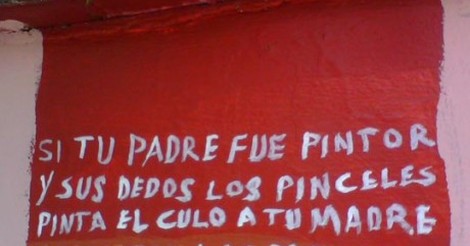 SI TU PADRE FUE PINTOR
Y SUS DEDOS LOS PINCELES
PINTA EL CULO A TU MADRE